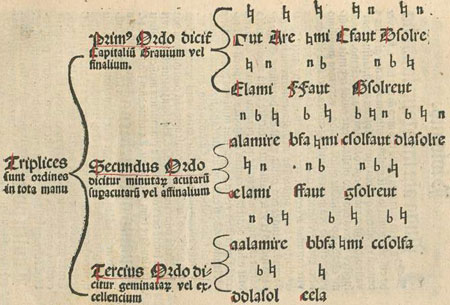 Triplices
sunt ordines
in tota manu
Primꝰ Ordo dicit̃
Capitaliũ Grauium vel
finalium.
♮ ♮ ♮ ♮ ♮
Γut Are ♮mi Cfaut Dsolre
♮ n n b
Elami FFaut Gsolreut
Secundus Ordo
dicitur minutaꝝ acutarũ
suꝑacutarũ vel affinalium
n b ♮ b ♮ b ♮ n b n
alamire bfa ♮mi csolfaut dlasolre
♮ n n b n b ♮
elami ffaut gsolreut
Tercius Ordo di-
citur geminataꝝ vel ex-
cellencium
n b ♮ b ♮ b ♮
aalamire bbfa ♮mi ccsolfa
b ♮ ♮
ddlasol eela